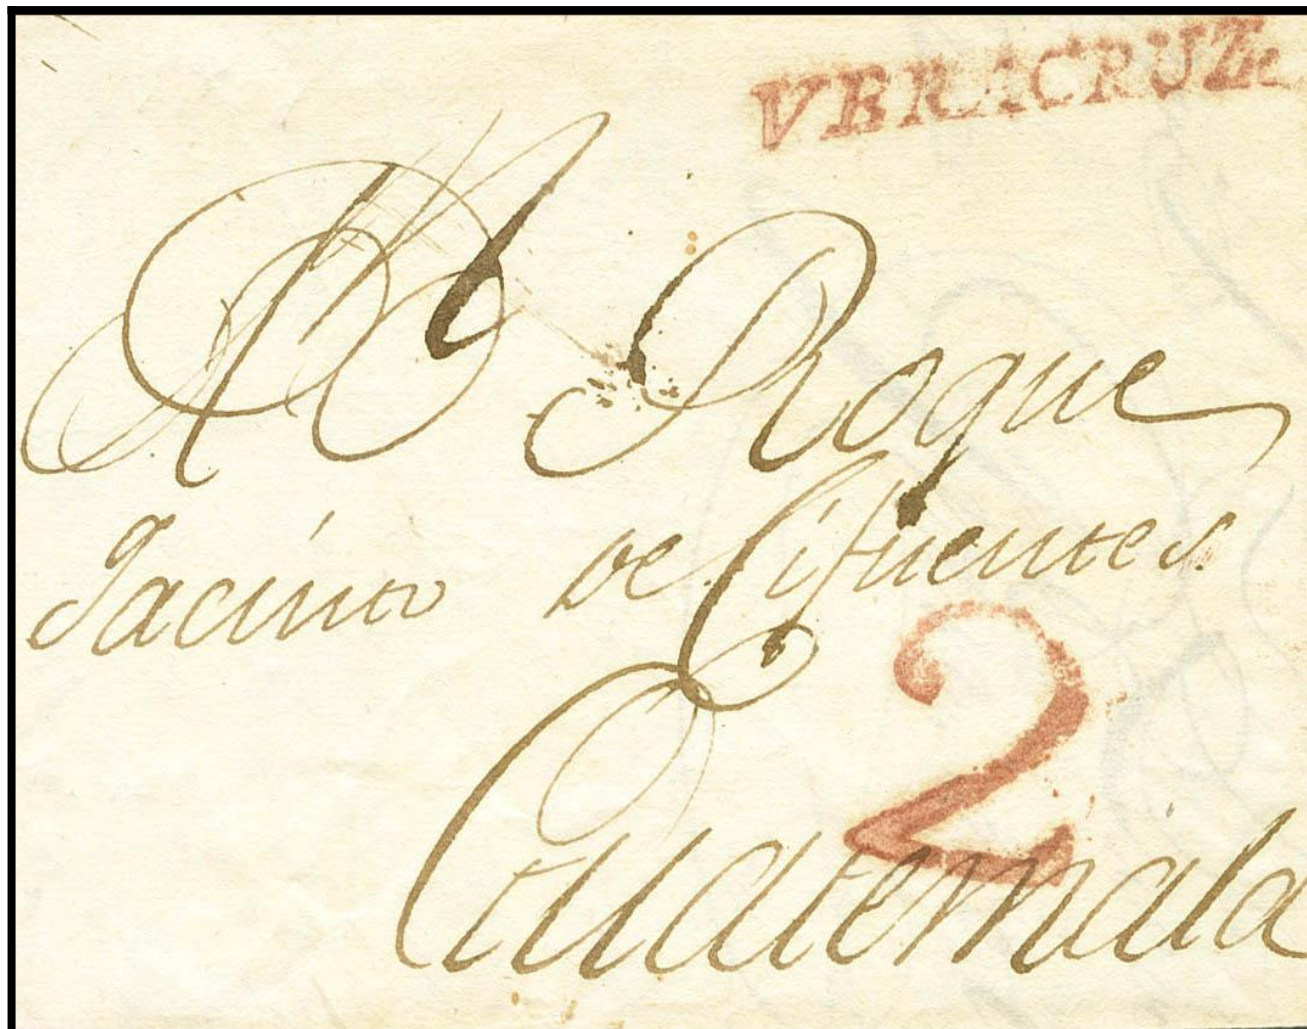 VERACRUZ
Roque
Jacinto de Cifuentes
2
Guatemala